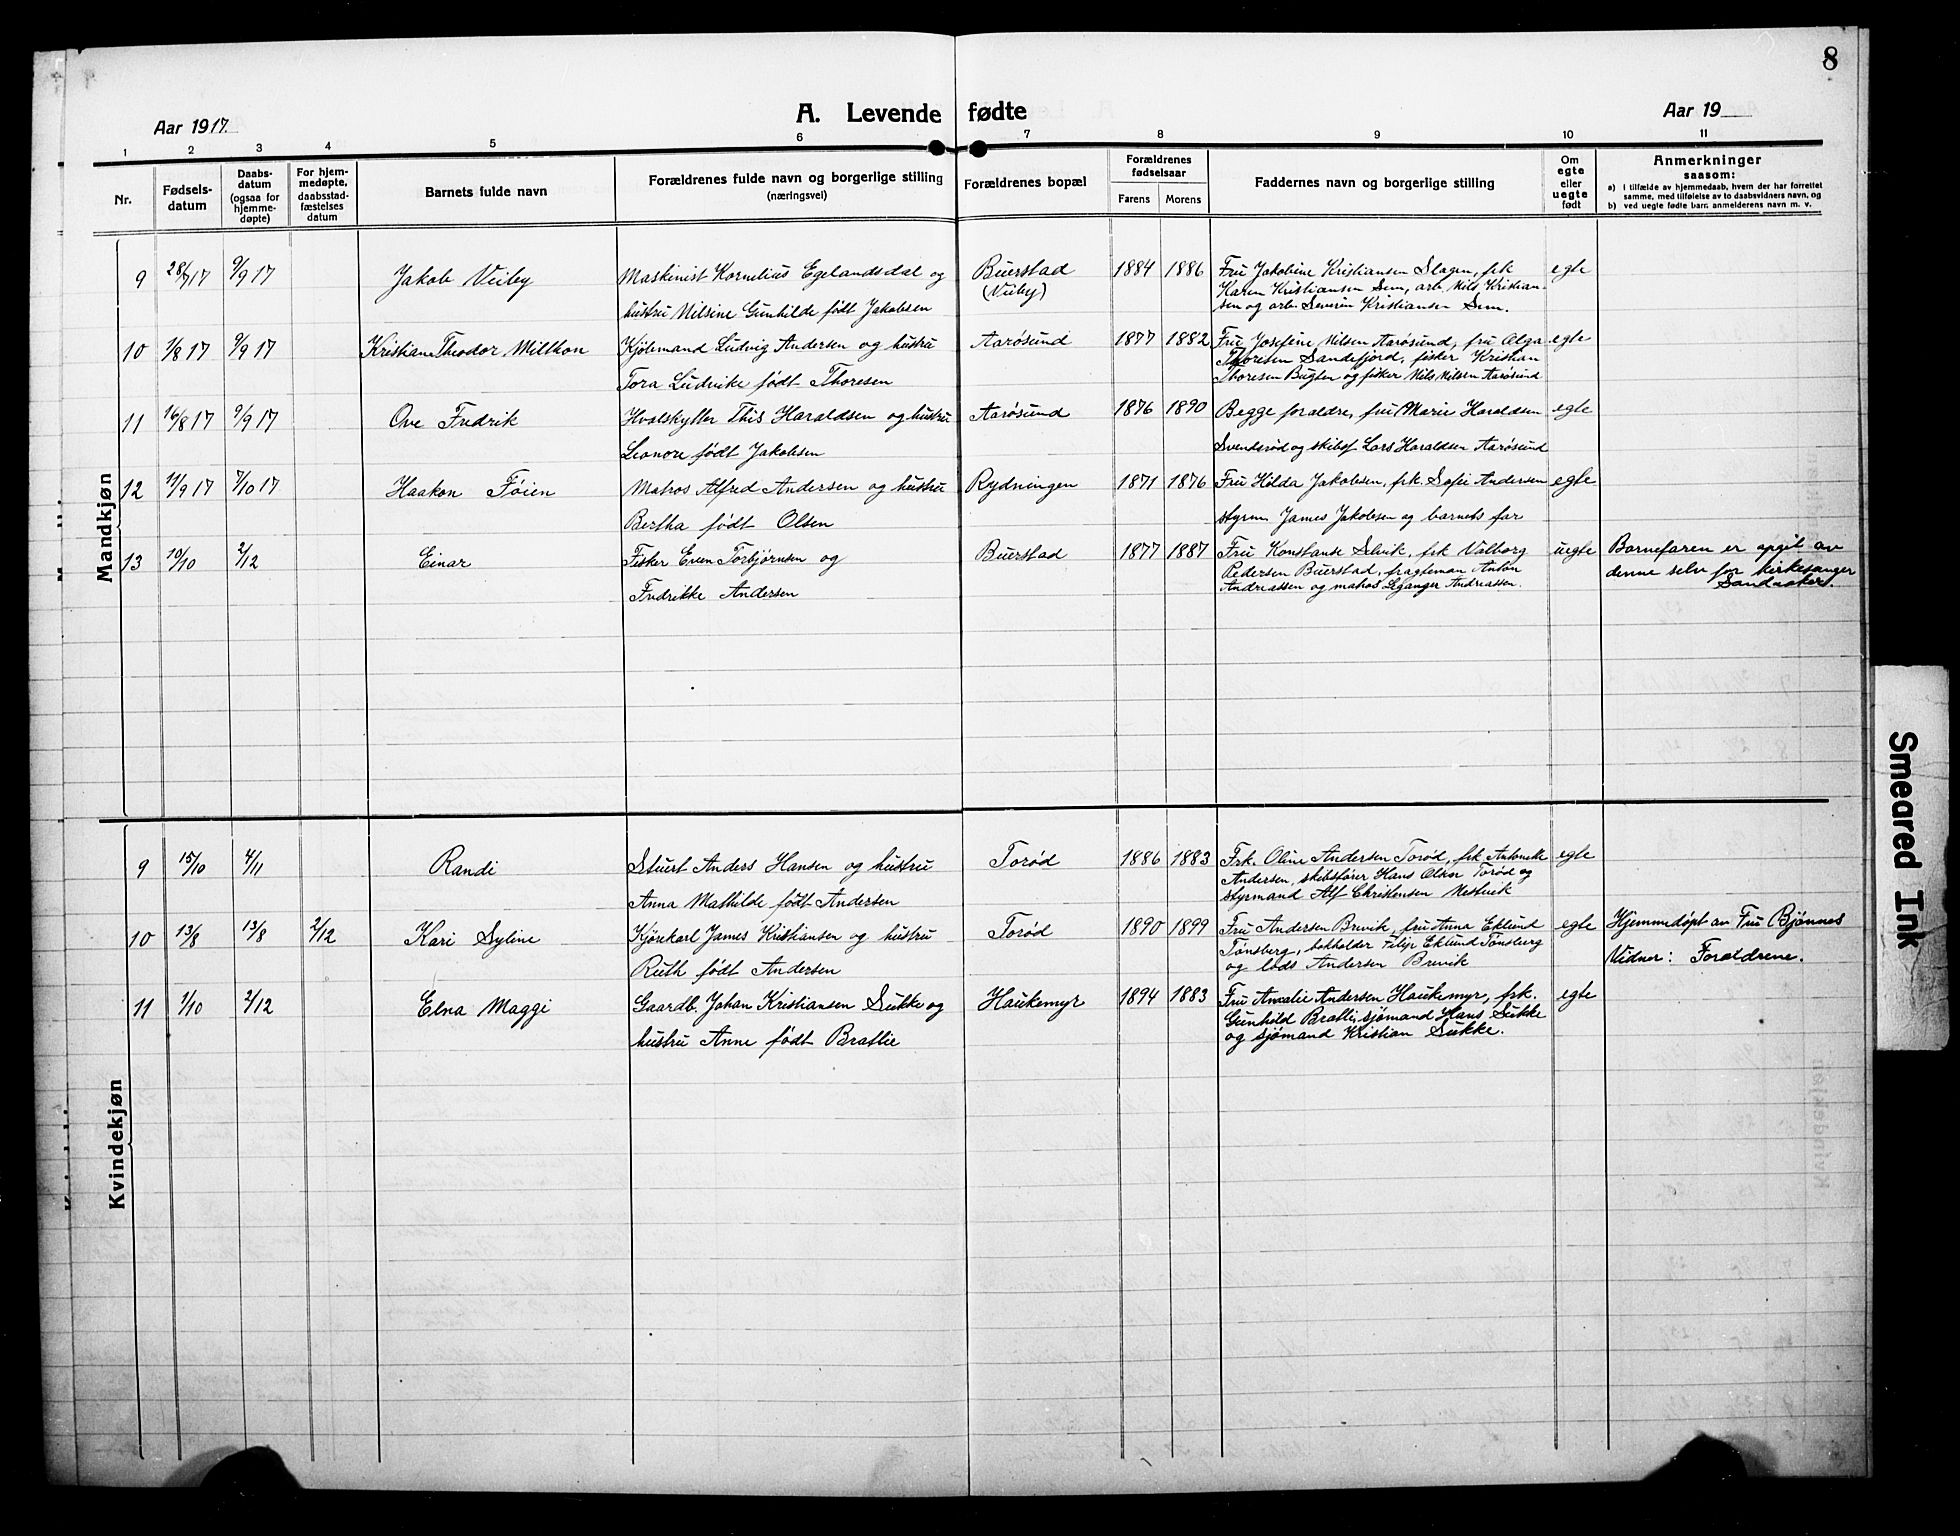 8
A. Levende fødte
Aar 1917.
Aar 19
1 2 3 4 5 6 7 8 9 10 11
Nr.
Fødsels-
datum
Daabs-
datum
(ogsaa for
hjemme-
døpte)
For hjem-
medøpte,
daabsstad-
fæstelses
datum
Barnets fulde navn
Forældrenes fulde navn og borgerlige stilling
(næringsvei)
Forældrenes bopæl
Forældrenes
fødselsaar
Farens Morens
Faddernes navn og borgerlige stilling
Om
egte
eller
uegte
født
Anmerkninger
saasom:
a) i tilfælde av hjemmedaab, hvem der har forrettet
samme, med tilføielse av to daabsvidners navn, og
b) ved uegte fødte barn anmelderens navn m. v.
Mandkjøn
9 28/7 17 9/9 17 Jakob Veiby Maskinist Kornelius Egelandsdal og Buerstad 1884 1886 Fru Jakobine Kristiansen Slagen, frk egte
(Veiby) Karen Kristiansen Sem, arb. Nils Kristian-
hustru Nilsine Gunhilde født Jakobsen sen og arb. Severin Kristiansen Sem.
10 1/8 17 9/9 17 Kristian Theodor Millkon Kjøbmand Ludvig Andersen og hustru Aarøsund 1877 1882 Fru Josefine Nilsen Aarøsund, fru Olga egte
Thoresen Sandefjord, fisker Kristian
Tora Ludvike født Thoresen Thoresen Bugten og fisker Nils Nilsen Aarøsund
11 16/8 17 9/9 17 Ove Fredrik Hvalskytter This Haraldsen og hustru Aarøsund 1876 1890 Begge forældre, fru Marie Haraldsen egte
Leonore født Jakobsen Svenderød og skibsf Lars Haraldsen Aarøsund
12 11/9 17 7/10 17 Haakon Føien Matros Alfred Andersen og hustru Rydningen 1871 1876 Fru Hilda Jakobsen, frk. Sofie Andersen egte
Bertha født Olsen styrm. James Jakobsen og barnets far
13 10/10 2/12 Einar Fisker Even Torbjørnsen og Buerstad 1877 1887 Fru Konstanse Selvik, frk Valborg uegte Barnefaren er opgit av
Pedersen Buerstad, fragteman Anton denne selv for kirkesanger
Fredrikke Andersen Andreassen og matros Leganger Andreassen. Sandaaker
Kvindekjøn
9 15/10 4/11 Randi Stuert Anders Hansen og hustru Torød 1886 1883 Frk. Oline Andersen Torød, frk Antonette egte
Andersen, skibsfører Hans Olsen Torød og
Anna Mathilde født Andersen styrmand Alf Christensen Nesvik
10 13/8 13/8 2/12 Kari Syline Kjørekarl James Kristiansen og hustru Torød 1890 1899 Fru Andersen Brevik, fru Anna Eklund egte Hjemmedøpt av Fru Bjønnes
Tønsberg, bokholder Filip Eklund Tønsberg
Ruth født Andersen og lods Andersen Brevik Vidner: Forældrene.
11 1/10 2/12 Elna Maggi Gaardb. Johan Kristiansen Sukke og Haukemyr 1894 1883 Fru Amalie Andersen Haukemyr, frk. egte
Gunhild Bratlie, sjømand Hans Sukke
hustru Anne født Bratlie og sjømand Kristian Sukke.
Smeared Ink